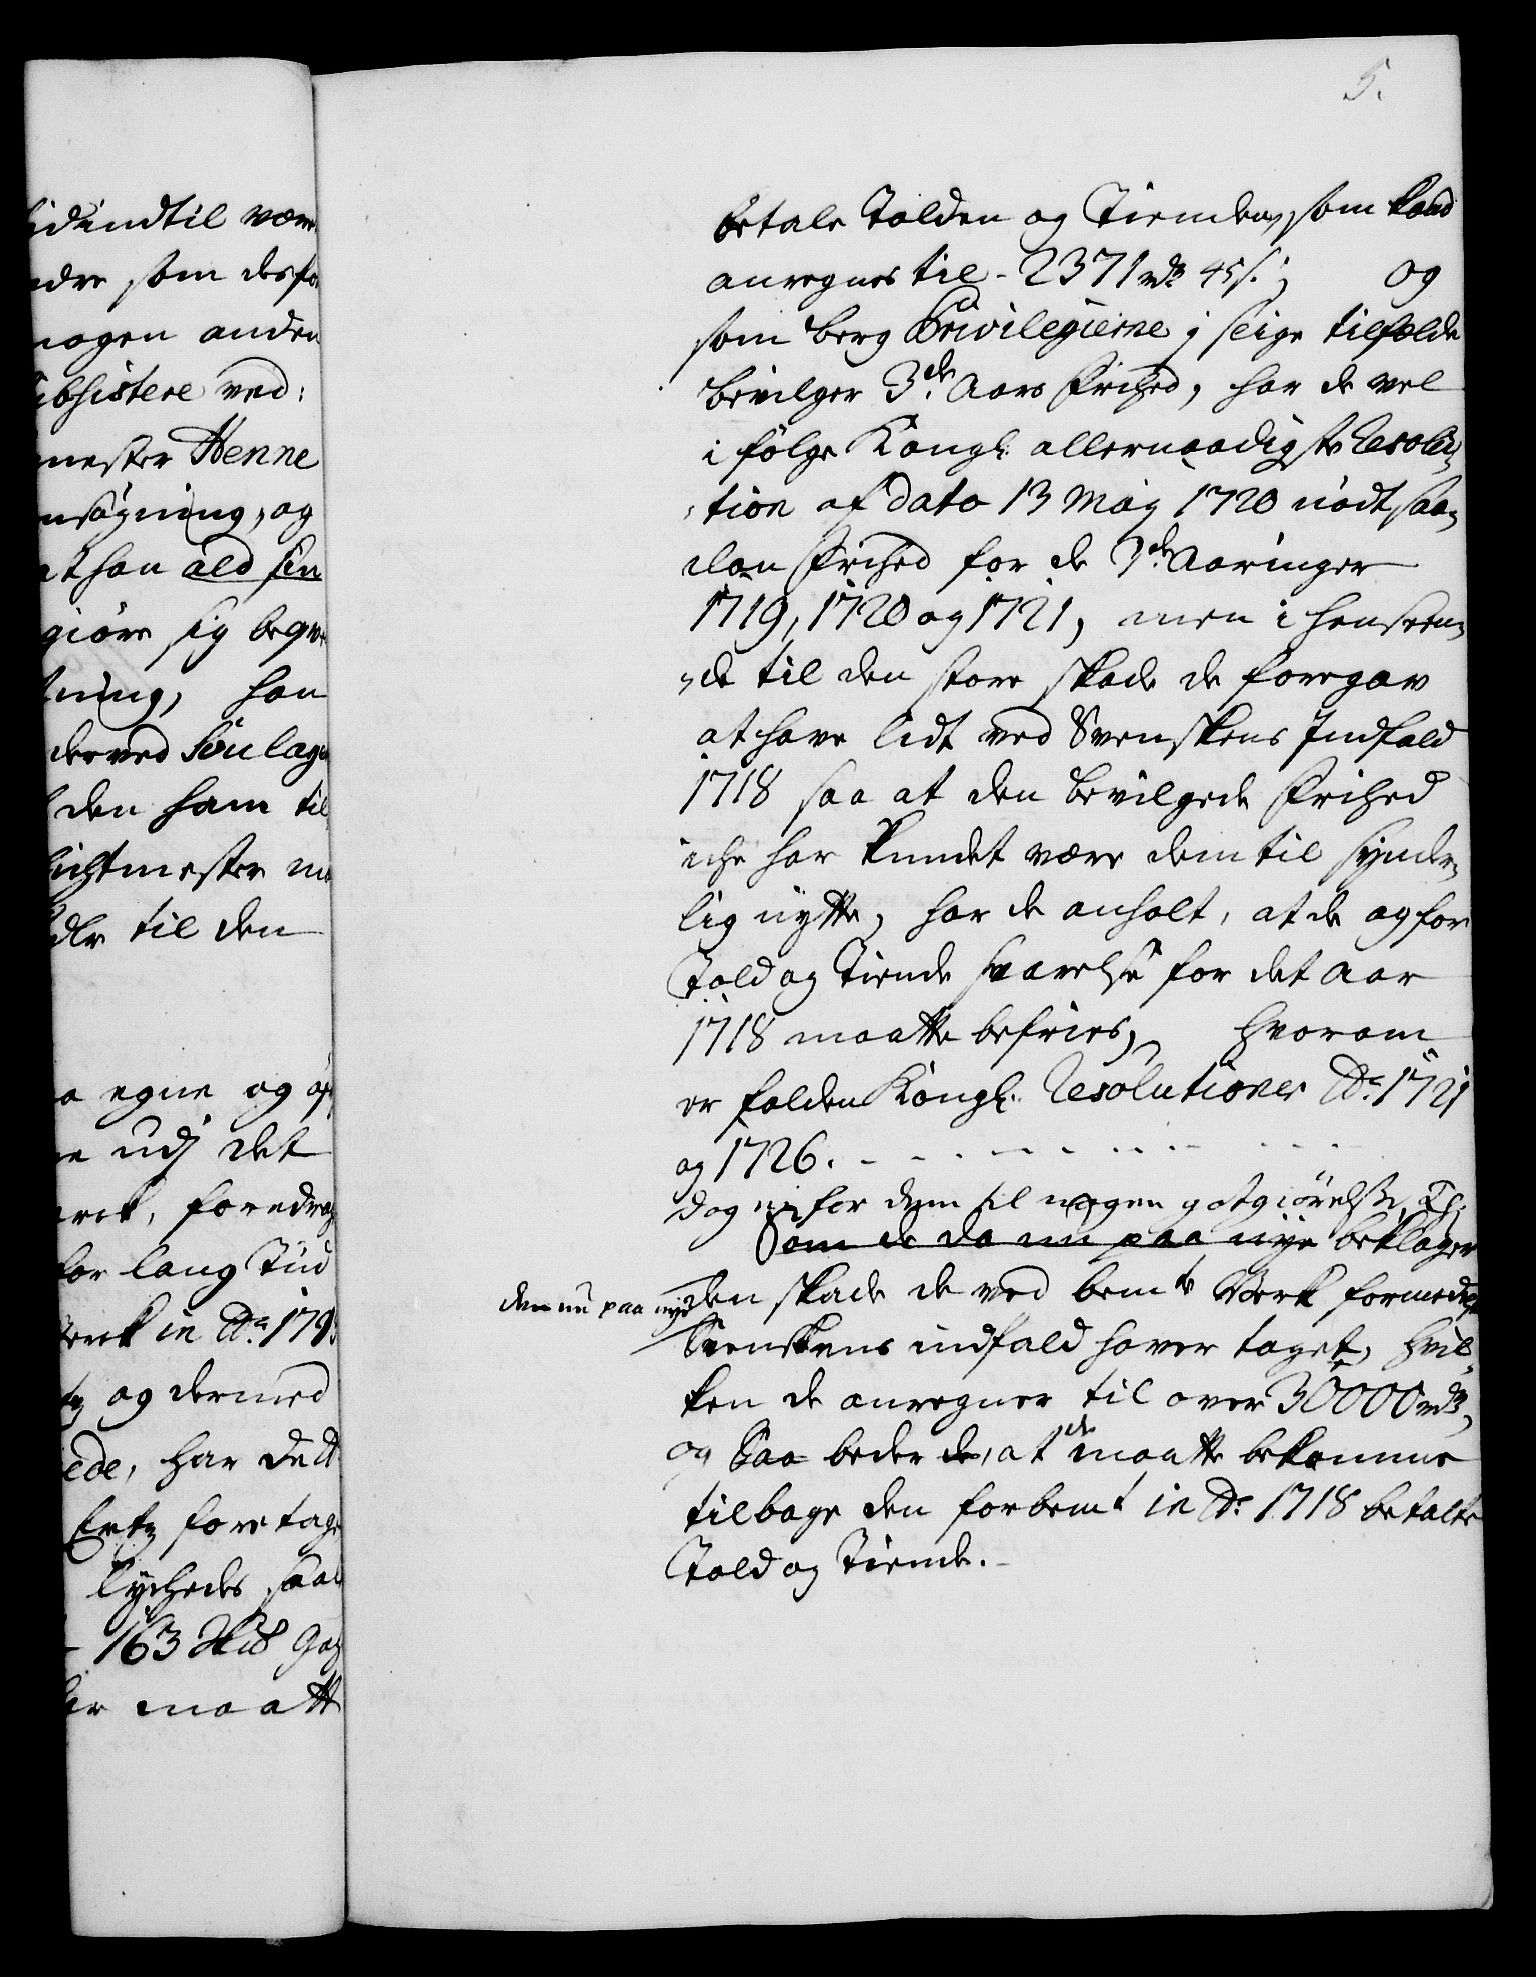 5.
idindtil være
som desfo
nogen anden
ubsistere ved:
mester Henne
nsøgning, og
at han ald sin
giøre sig beqve
tning, han
derved
den ham til
igtmester
til den
egne og
udj det
erck, foredrag
for lang Tiid
in Ao 179
og dermed
ede, har
Ertz foretage
lychedes saal
163
er maatte
betale Tolden og Tienden, som kand
anregnes til - 2371 rd 45 s.; og
som Berg Privilegierne j slige tilfælde
bevilger 3de Aars Frihed, har de vel
i følge Kongl: allernaadigste Resolu-
tion af dato 13 Maj 1720 nødt saa-
dan Frihed for de 3de Aaringer
1719, 1720 og 1721, men i henseen-
de til den store skade de foregav
at have lidt ved Svenskens Indfald
1718 saa at den bevilgede Frihed
iche har kundet være dem til synder-
lig nytte, har de anholt, at de og for
Told og Tiende svarelse for det aar
1718 maatte befries, hvorom
er falden Kongl: Resolutioner Ao 1721
og 1726. - - - - - - - - -
dog ej for dem til nogen gotgiørelse, Th:
Som de da nu paa nye beklager
den nu paa nye
den skade de ved bemte Verk formedelst
Svenskens indfald haver taget, hvil-
ken de anregner til over 30000 rd,
og Saa beder de, at de maatte bekomme
tilbage den forbemt in Ao 1718 betalte
Told og Tiende. -